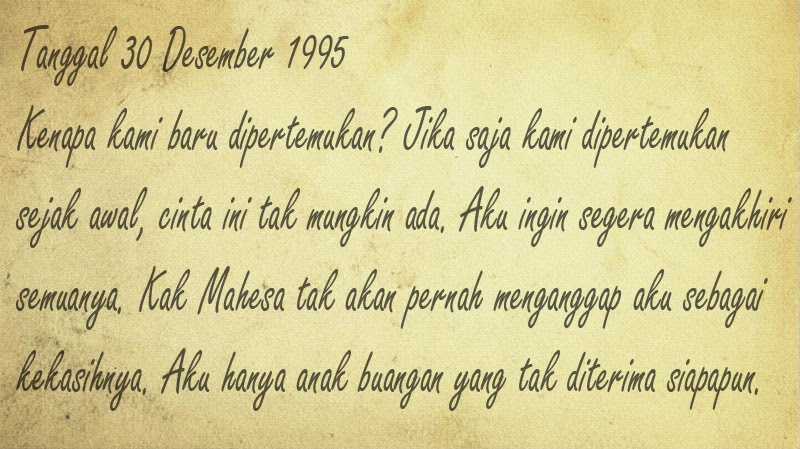 Tanggal 30 Desember 1995
Kenapa kami baru dipertemukan? Jika saja kami dipertemukan
sejak awal, cinta ini tak mungkin ada. Aku ingin segera mengakhiri
semuanya. Kak Mahesa tak akan pernah menganggap aku sebagai
kekasihnya. Aku hanya anak buangan yang tak diterima siapapun.